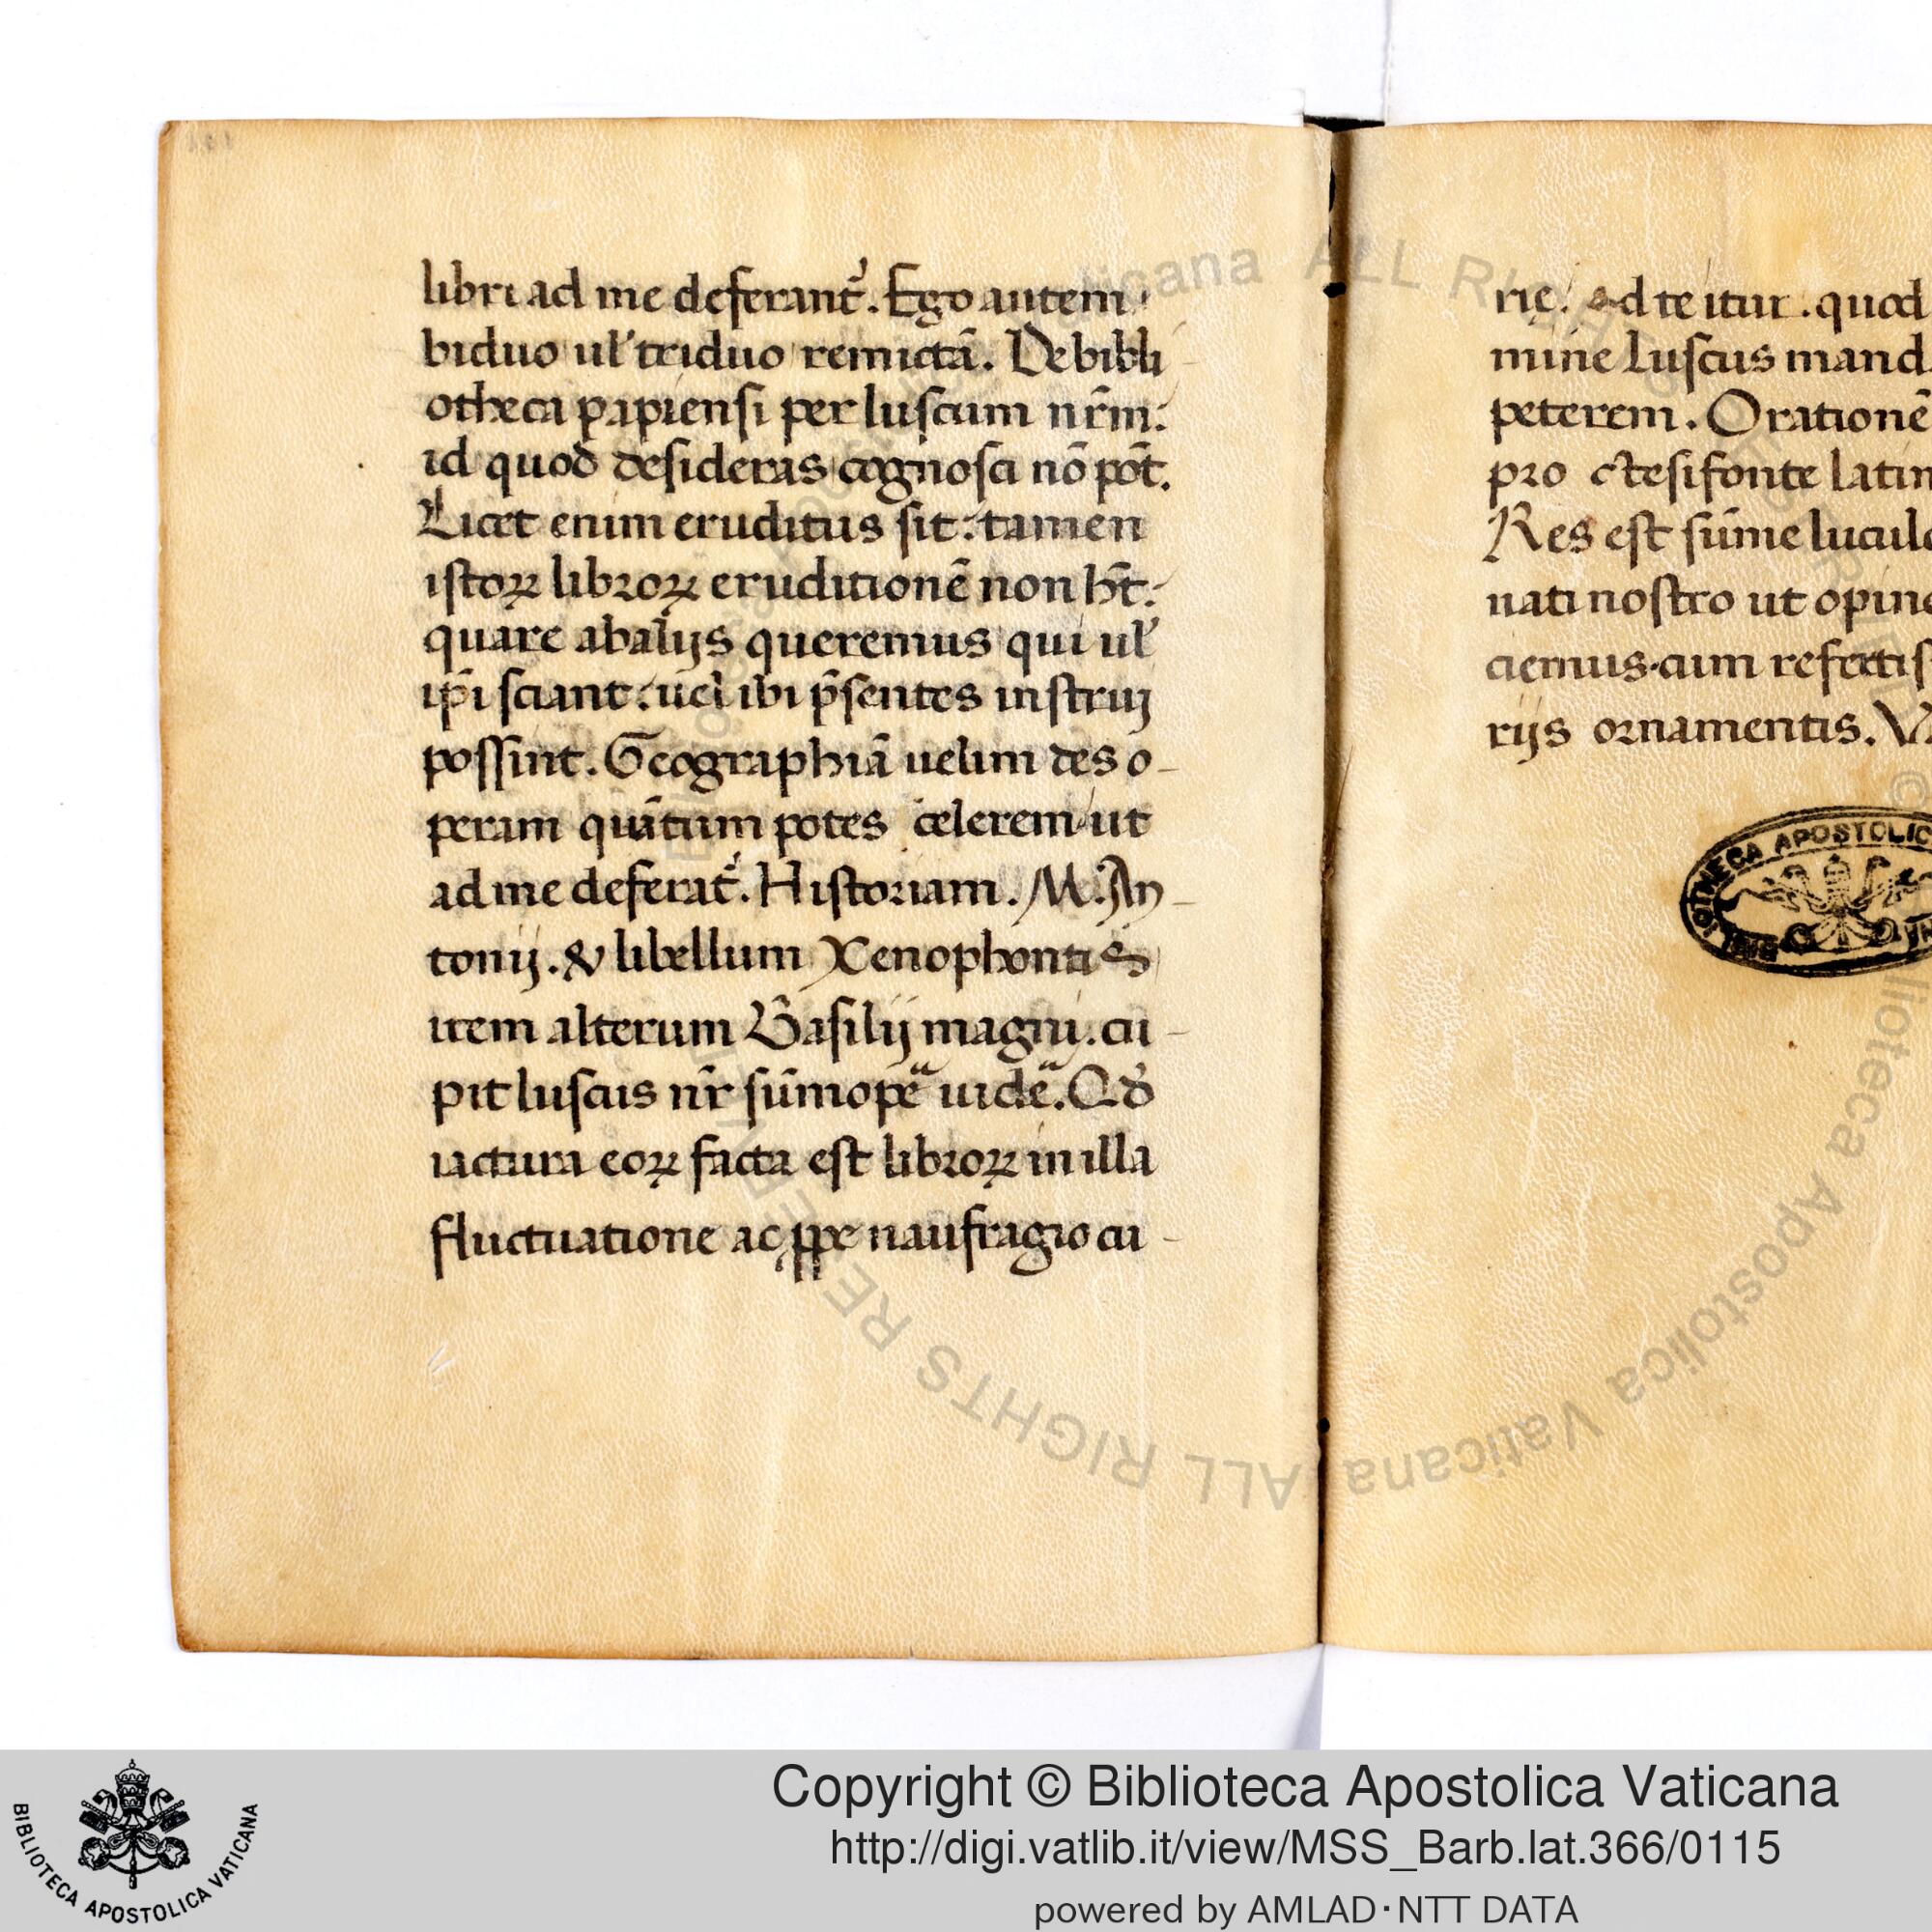 libri ad me deferant᷑. Ego autem
biduo ul' triduo remictā. De bibli
otheca papiensi per luscum nr̄m:
id quod desideras cognosci nō pōt.
Licet enim eruditus sit: tamen
istoꝝ libroꝝ eruditionē non h̄t:
quare ab alijs queremus qui ul'
ip̄i sciant: uel ibi p̄sentes instrui
possint. Geographiā uelim des o-
peram quātum potes celerem ut
ad me deferat᷑. Historiam. M. An-
tonij. & libellum Xenophontis
item alterum Basilij magni. cu-
pit luscus nr̄ sūmopeᷓ uideᷓ. Qđ
iactura eoꝝ facta est libroꝝ in illa
fluctuatione ac ꝓpe naufragio cu-
rie. ad te itur. quod
mine luscus mand
peterem. Orationē
pro ctesifonte latin
Res est sūme lucul
nati nostro ut opin
ciemus. cum refertis
rijs ornamentis. V
BIBLIOTHECA APOSTOLIC
Copyright © Biblioteca Apostolica Vaticana
http://digi.vatlib.it/view/MSS_Barb.lat.366/0115
powered by AMLAD·NTT DATA
BIBLIOTECA APOSTOLICA VATICANA